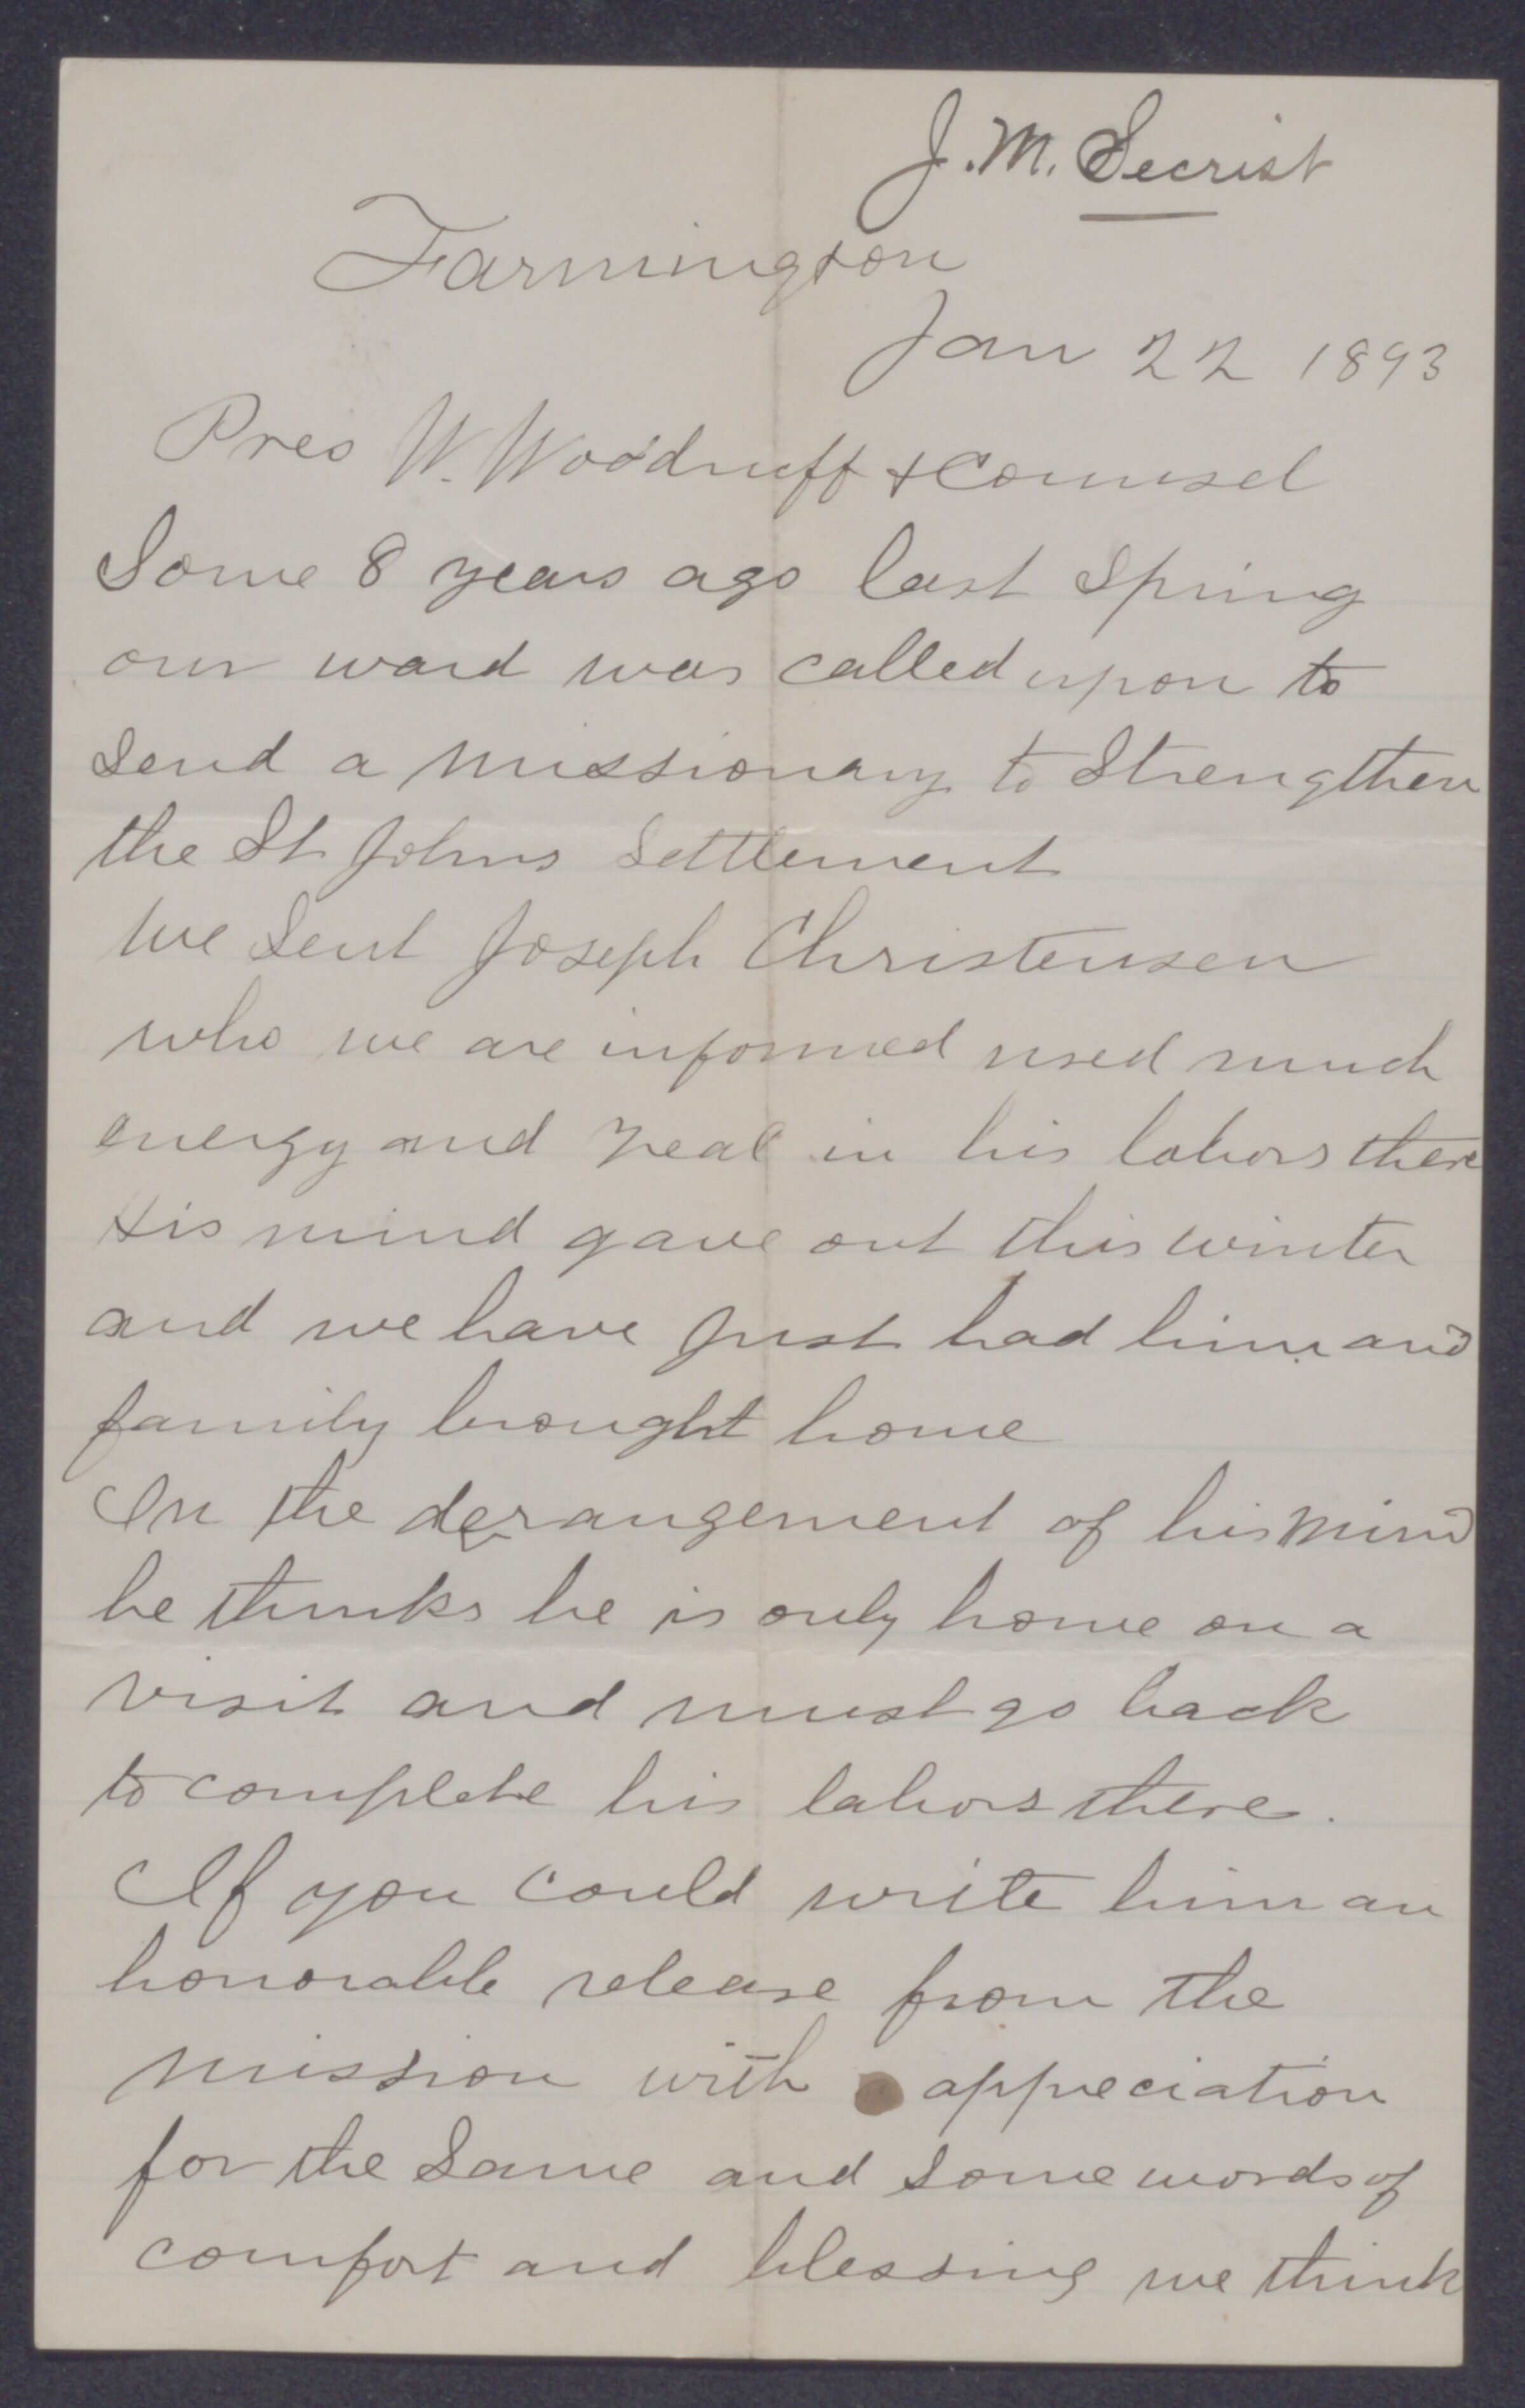 J. M. Secrist
Farmington
Jan 22 1893
Pres W. Woodruff & Counsel
Some 8 years ago last Spring
our ward was called upon to
Send a missionary to Strengthen
the St Johns Settlement
We Sent Joseph Christensen
who we are informed used much
energy and zeal in his labors there
His mind gave out this winter
and we have just had him and
family brought home
In the derangement of his mind
he thinks he is only home on a
visit and must go back
to complete his labors there.
If you could write him an
honorable release from the
mission with appreciation
for the Same and Some words of
comfort and blessing we think